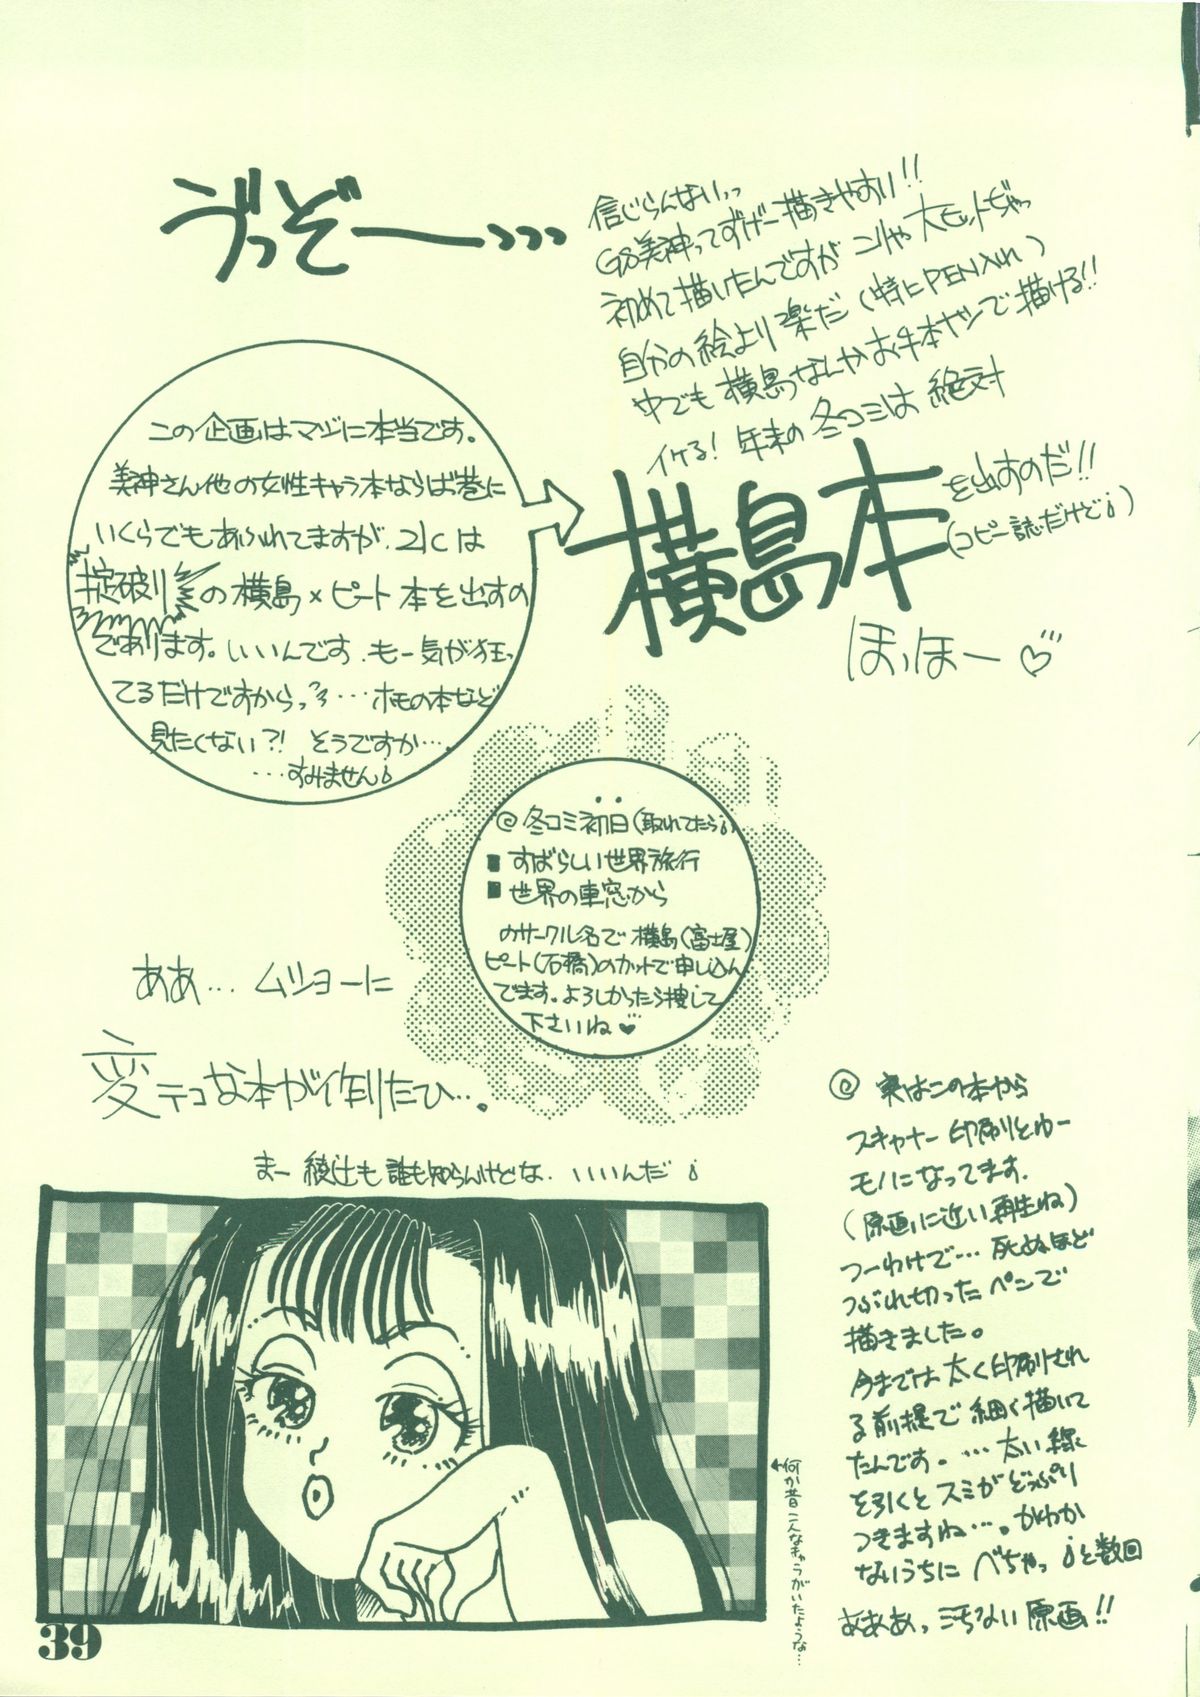 うっぞー…
信じらんないっっ
GS美神ってすげー描きやすい!!
初めて描いたんですが こりゃ大ヒットぢゃっ
自分の絵より楽だ(特にPEN入れ)
中でも横島なんかお手本ナシで描ける!!
イケる! 年末の冬コミは絶対
横島本を出すのだ!!
(コピー誌だけど)
ほっほー♡
この企画はマジに本当です。
美神さん他の女性キャラ本ならば巷に
いくらでもあふれてますが、21Cは
掟破りの横島×ピート本を出すの
であります。いいんです、もー気が狂っ
てるだけですからっ…ホモの本など
見たくない?! そうですか…。
…すみません
◎冬コミ初日(取れてたら)
■すばらしい世界旅行
■世界の車窓から
のサークル名で横島(富士屋)
ピート(石橋)のカットで申し込ん
でます。よろしかったら捜して
下さいね♡
ああ…ムショーに
変テコな本が作りたひ…。
まー綾辻も誰も知らんけどな、いいんだ
◎実はこの本から
スキャナー印刷とゆー
モノになってます、
(原画に近い再生ね)
つーわけで…死ぬほど
つぶれ切ったペンで
描きました。
今までは太く印刷され
る前提で細く描いて
たんです。…太い線
を引くとスミがどっぷり
つきますね…。かわか
ないうちにべちゃっと数回
あああっきちない原画!!
←何か昔こんなキャラがいたような…
39